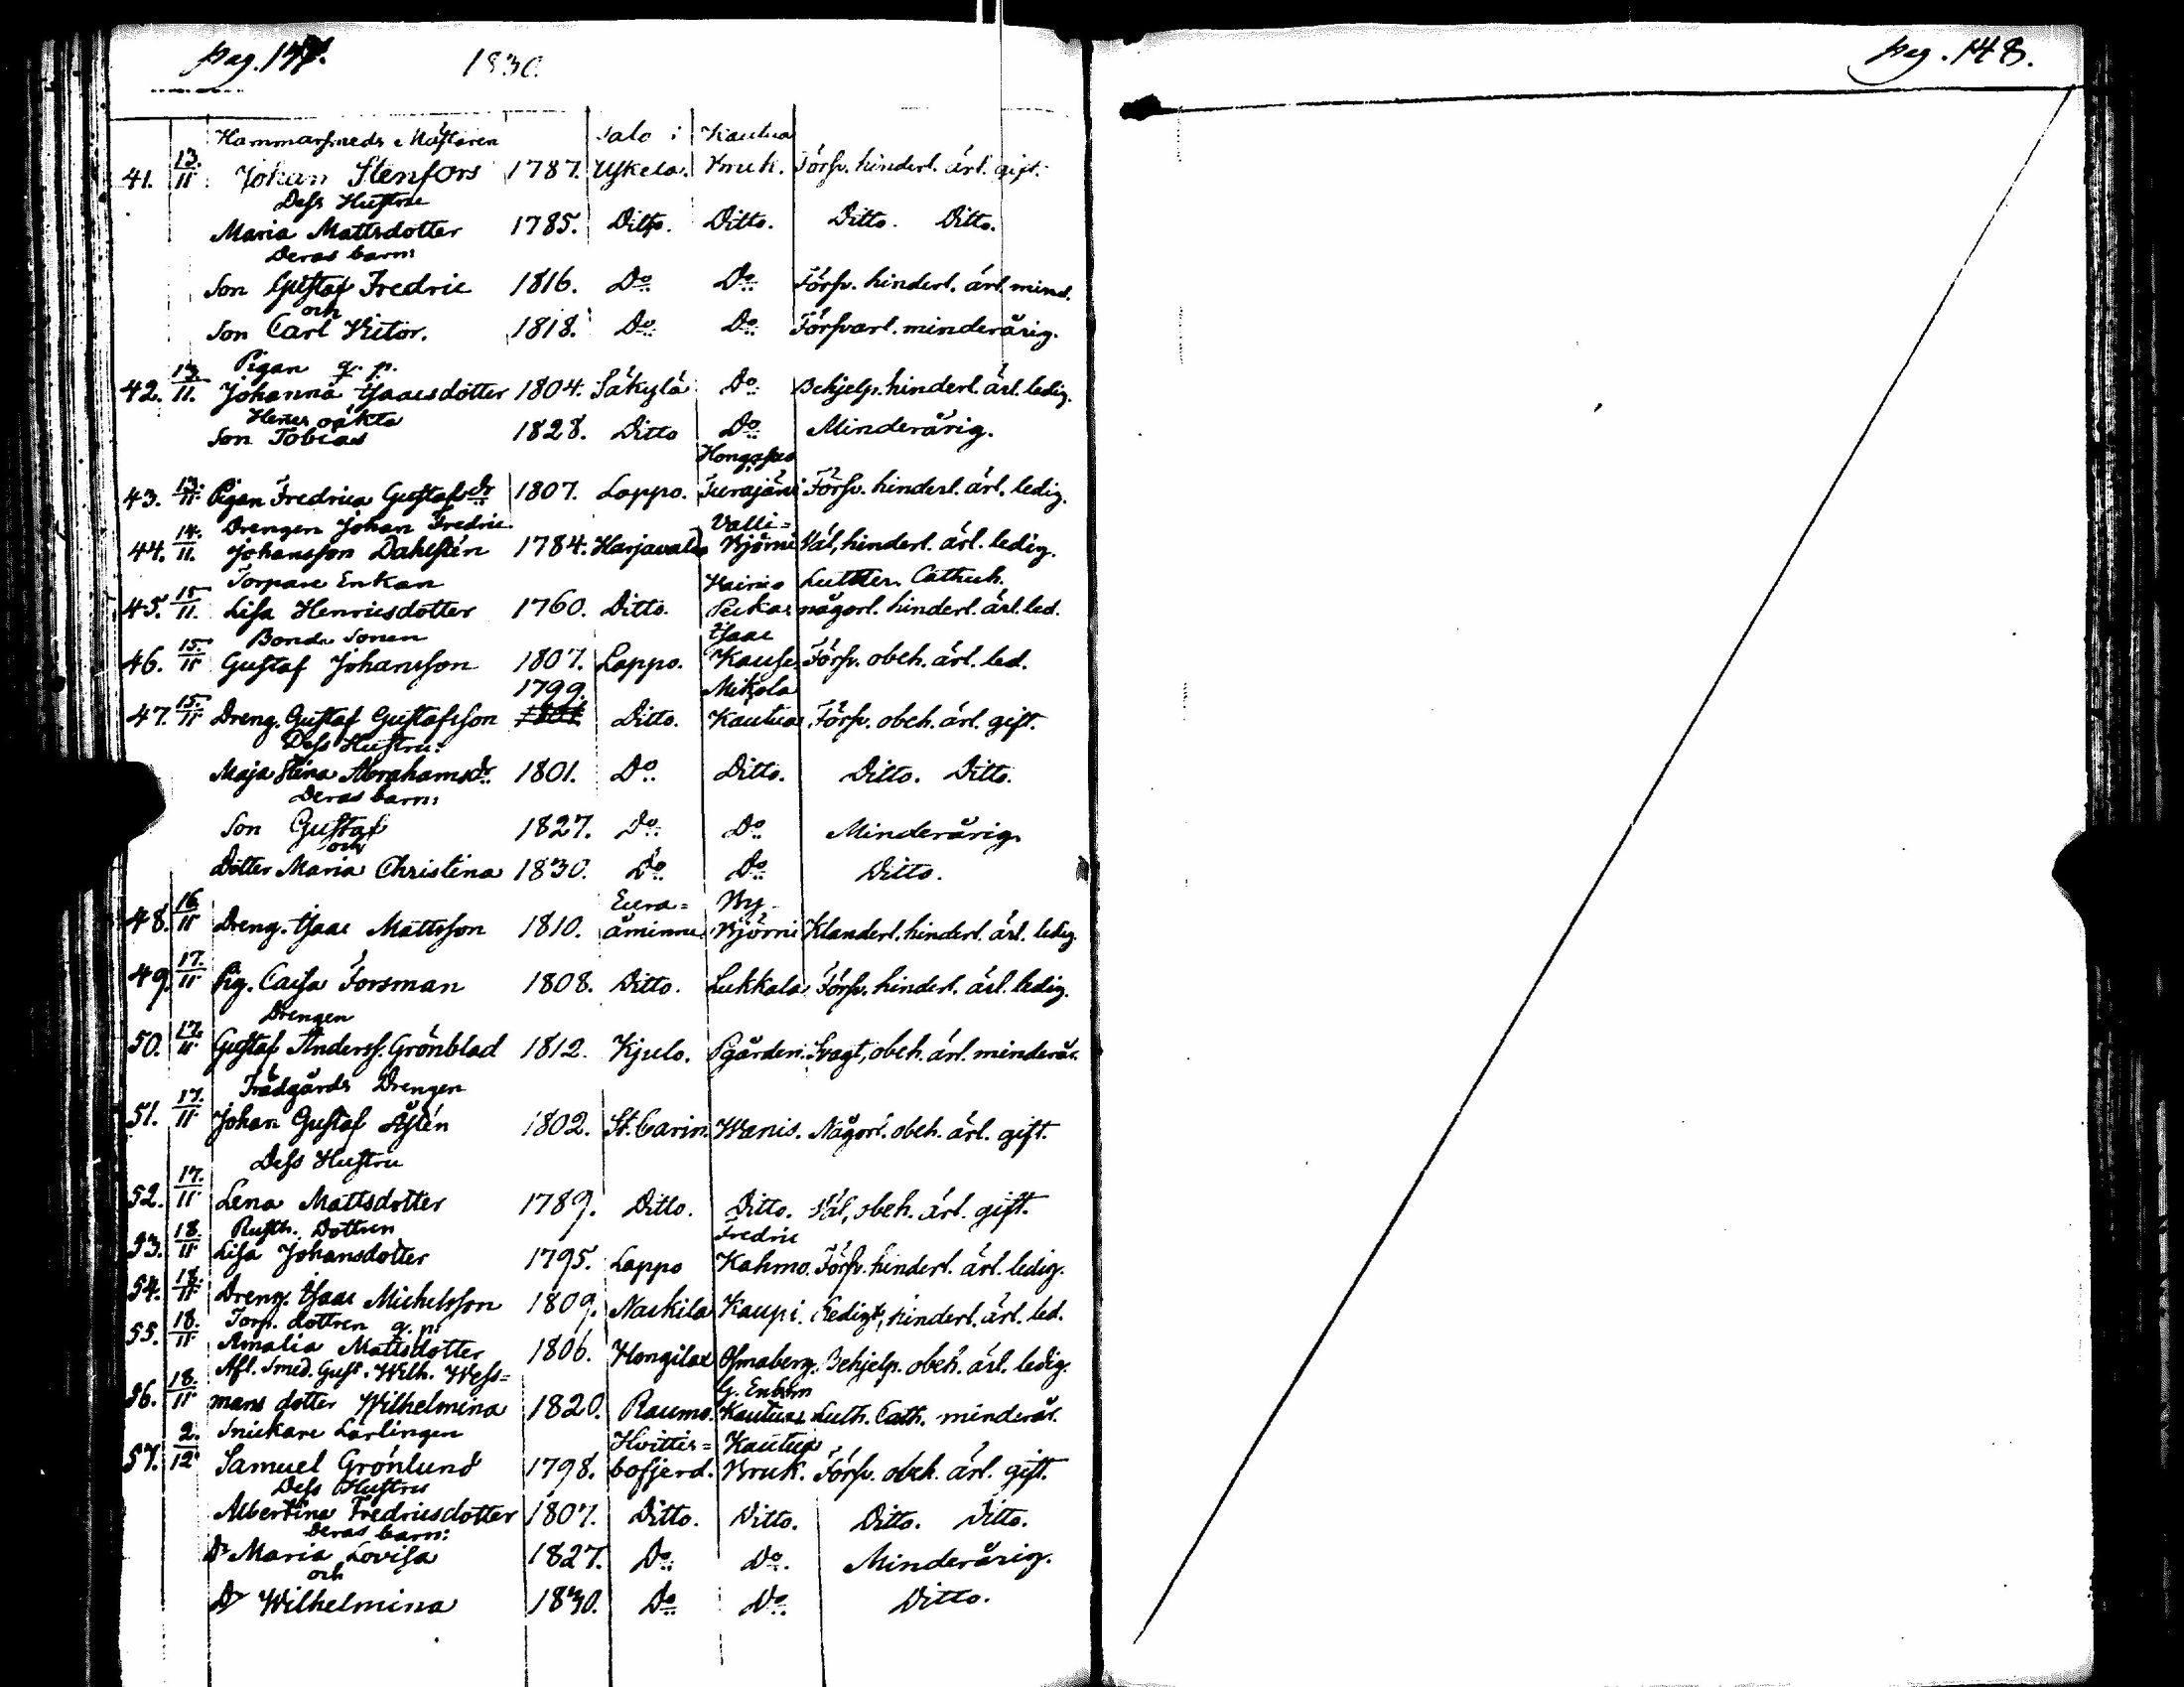 pag. 147. 1830.
Hammarsmeds Mästaren Salo i Kautua
41. 13/11 Johan Stenfors 1787. Uskela. Bruk. Försv. hinderl. ärl. gift.
Dess Hustru
Maria Mattsdotter 1785. Ditto. Ditto. Ditto. Ditto.
Deras barn:
Son Gustaf Fredric 1816. Do Do Försv. hinderl. ärl. mind.
och
Son Carl Victor. 1818. Do Do Försvarl. minderårig.
Pigan q. p.
42. 13/11. Johanna Isaacsdotter 1804. Säkylä Do Behjelp. hinderl. ärl. ledig.
Henes oäkta
Son Tobias 1828. Ditto Do Minderårig.
43. 13/11. Pigan Fredrica Gustafsdr 1807. Lappo. Turajärvi Försv. hinderl. ärl. ledig.
Drengen Johan Fredric Valli=
44. 14/11. Johansson Dahlstén 1784. Harjavalda Björni Väl, hinderl. ärl. ledig.
Torpare Enkan Luther. Cathech.
45. 15/11. Lisa Henricsdotter 1760. Ditto. någorl. hinderl. ärl. led.
Bonde Sonen Isaac
46. 15/11 Gustaf Johansson 1807. Lappo. Försv. obeh. ärl. led.
1799. Mikola
47. 15/11 Dreng. Gustaf Gustafsson Ditto. Kautua Försv. obeh. ärl. gift.
Dess Hustru:
Maja Stina Abrahamsdr 1801. Do Ditto. Ditto. Ditto.
Deras barn:
Son Gustaf 1827. Do Do Minderårig
och
Dotter Maria Christina 1830. Do Do Ditto.
Eura= By
48. 16/11 Dreng. Isaac Mattsson 1810. åminne Björni Klanderl. hinderl. ärl. ledig.
49. 17/11 Pig. Caisa Forsman 1808. Ditto. Lukkala Försv. hinderl. ärl. ledig.
Drengen
50. 17/11 Gustaf Anderss. Grönblad 1812. Kjulo. Pgården. Svagt, obeh. ärl. minderår.
Trädgårds Drengen
51. 17/11 Johan Gustaf Åstén 1802. St. Carin. Wanis. Någorl. obeh. ärl. gift.
Dess Hustru
52. 17/11 Lena Mattsdotter 1789. Ditto. Ditto. Väl, obeh. ärl. gift.
Rusth. Dottren Fredric
53. 18/11 Lisa Johansdotter 1795. Lappo Kahmo. Försv. hinderl. ärl. ledig.
54. 18/11 Dreng. Isaac Michelsson 1809. Nackila Kaupi. Redigt, hinderl. ärl. led.
Torp. dottren q. p.
55. 18/11 Amalia Mattsdotter 1806. Hongilax Osmaberg. Behjelp. obeh. ärl. ledig.
Afl. Smed. Gust. Wilh. Wess= G. Enbom
56. 18/11 mans dotter Wilhelmina 1820. Raumo. Kautua Luth. Cath. minderår.
Snickare Lärlingen Hvittis= Kautua
57. 2/12 Samuel Grönlund 1798. bofjerd. Bruk. Försv. obeh. ärl. gift.
Dess Hustru
Albertina Fredricsdotter 1807. Ditto. Ditto. Ditto. Ditto.
Deras barn:
Dr Maria Lovisa 1827. Do Do. Minderårig.
och
Dr Wilhelmina 1830. Do Do. Ditto.
pag. 148.